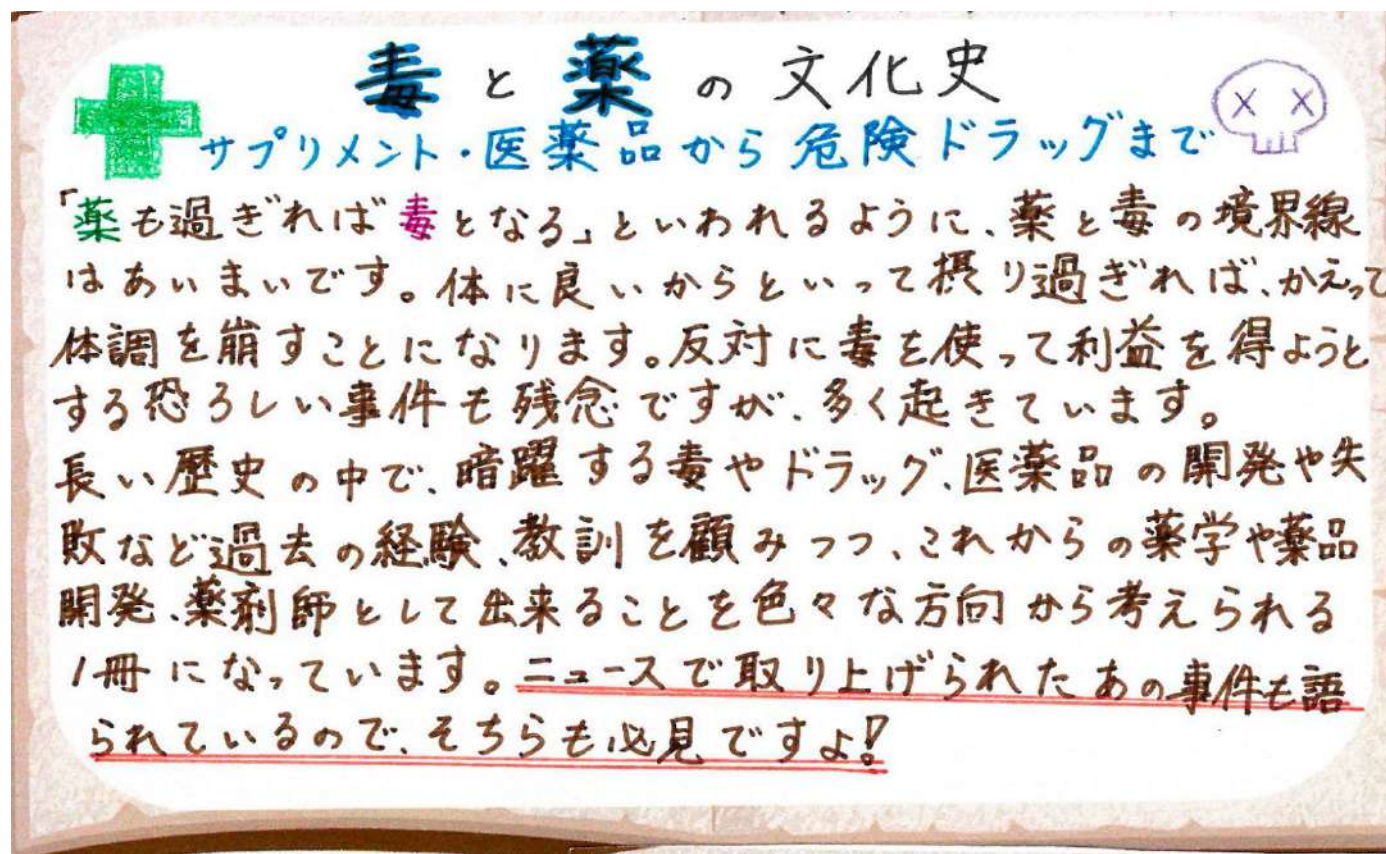 毒と薬の文化史
サプリメント・医薬品から危険ドラッグまで
「薬も過ぎれば毒となる」といわれるように、薬と毒の境界線
はあいまいです。体に良いからといって摂り過ぎれば、かえって
体調を崩すことになります。反対に毒を使って利益を得ようと
する恐ろしい事件も残念ですが、多く起きています。
長い歴史の中で、暗躍する毒やドラッグ、医薬品の開発や失
敗など過去の経験、教訓を顧みつつ、これからの薬学や薬品
開発、薬剤師として出来ることを色々な方向から考えられる
1冊になっています。ニュースで取り上げられたあの事件も語
られているので、そちらも必見ですよ!